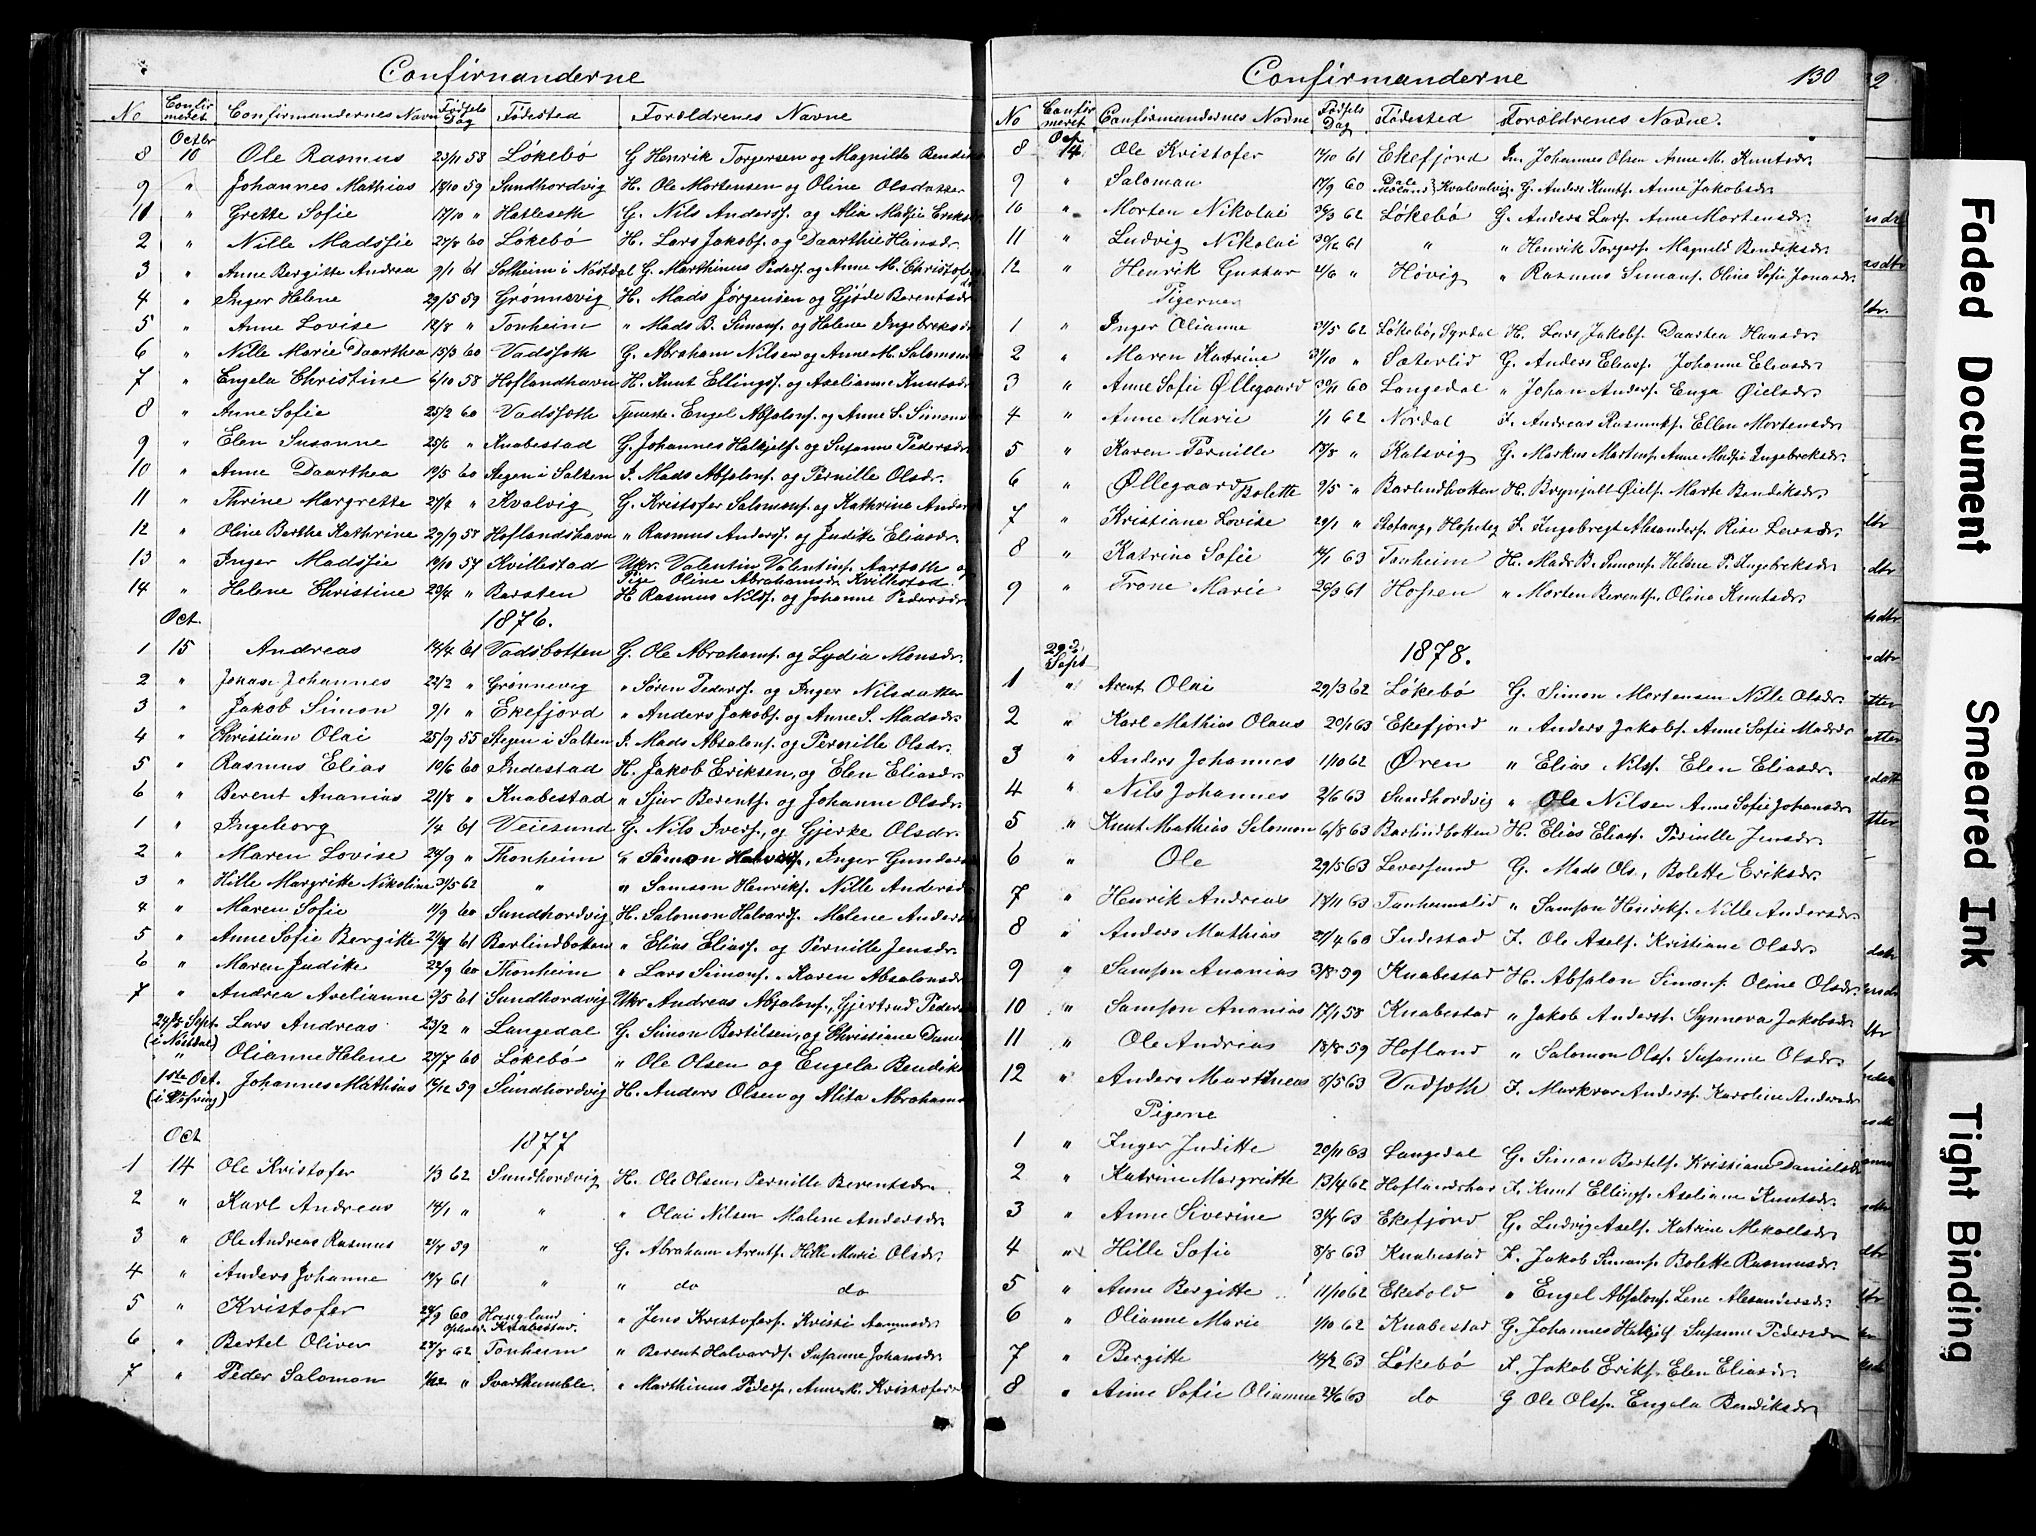 Confirmanderne
No Confirmeret Confirmandernes Navn Fødsels Dag Fødested Forældrenes Navne
Octbr
8 10 Ole Rasmus 23/11 58 Løkebø G Henrik Torgersen og Magnilde
9 " Johannes Mathias 18/10 59 Sundhordvig H. Ole Mortensen og Oline Olsdatter
1 " Grette Sofie 17/10 " Hatleseth G. Nils Andersf. og Alia Madsie
2 " Nille Madssie 24/8 60 Løkebø H. Lars Jakobf. og Daarthie Hansdr.
3 " Anne Bergitte Andrea 9/1 61 Solheim i Nøstdal G. Marthinus Pedersf. og Anne M.
4 " Inger Helene 29/5 59 Grønnevig H. Mads Jørgensen og Gjøde Berentsdr
5 " Anne Lovise 12/8 " Tonheim " Mads B. Simonf. og Helene Ingebreksd
6 " Nille Marie Daarthea 15/3 60 Vadsøth G. Abraham Nilsen og Anne M.
7 " Engela Christine 6/10 58 Hoflandhavn H. Knut Ellingsf. og Axelianne Knutsdr
8 " Anne Sofie 25/2 60 Vadsøth Tjeneste. Engel Absalonf. og Anne S.
9 " Elen Susanne 25/6 " Knabestad G. Johannes Halkjelf. og Susanne Pedersdr
10 " Anne Daarthea 19/5 60 Stegen i Salten I. Mads Absalonf. og Pernille Olsdr.
11 " Thrine Margrette 27/4 " Kvalvig G. Kristofer Salomonf. og Kathrina
12 " Oline Berthe Kathrine 29/9 58 Hoflandshavn " Rasmus Andersf. og Judithe Eliasdr.
13 " Inger Madssie 19/10 57 Kvillestad Ukr. Valentin Valentinf. Aarseth og
Pige Oline Abrahamsdr. Kvillestad.
14 " Helene Christine 29/4 " Barsten H Rasmus Nilsf. og Johanne Pedersdr
Oct. 1876.
1 15 Andreas 14/4 61 Vadsbotten G. Ole Abrahamf. og Lydia Monsdr.
2 " Johan Johannes 22/2 " Grønnevig " Søren Pedersf. og Inger Nilsdatter
3 " Jakob Simon 9/1 " Ekefjord " Anders Jakobf. og Anne S. Madsdr.
4 " Christian Olai 25/9 55 Stegen i Salten I. Mads Absalonf. og Pernille Olsdr.
5 " Rasmus Elias 10/6 60 Indestad H. Jakob Eriksen, og Elen Eliasdr.
6 " Berent Ananias 21/8 " Knabestad " Sjur Berentf. og Johanne Olsdr.
1 " Ingeborg 1/4 61 Veiesund G. Nils Iverf., og Gjerke Olsdr.
2 " Maren Lovise 24/9 " Thonheim Simon, Inger
3 " Hille Margritte Nikoline 31/5 62 " " Samson Henrikf. Nille Andersd
4 " Maren Sofie 11/9 60 Sundhordvig H. Salomon Halvardf. Malene
5 " Anne Sofie Bergitte 21/7 61 Barlindbotten " Elias Eliasf. og Pernille Jensdr.
6 " Maren Judite 22/9 60 Thonheim " Lars Simonf. " Karen Absalonsdr
7 " Andrea Axelianne 3/5 61 Sundhordvig Ukr Andreas Absalonf., Gjertrud
24de Sept. Lars Andreas 23/2 " Langedal G. Simon Bertilsen, og Christiane
(i Nøstdal)
" Olianne Helene 27/7 60 Løkebø " Ole Olsen og Engela
1ste Oct. Johannes Mathias 17/12 59 Sundhordvig H. Anders Olsen og Alita
Oct 1877
1 14 Ole Kristofer 1/3 62 Sundhordvig H. Ole Olsen, Pernille Berentsdr.
2 " Karl Andreas 14/1 " " " Olai Nilsen Malene Andersdr.
3 " Ole Andreas Rasmus 21/7 59 " G. Abraham Arentf. Hille Marie Olsdr.
4 " Anders Johanne 19/7 61 " " do do
5 " Kristofer 24/9 60 Haugland " Jens Kristoferf. Kristi
Ophold. Knabestad.
6 " Bertel Oliver 28/8 62 Tonheim " Berent Halvardf. Susanne Johansdr.
7 " Peder Salomon " Svarthumble. " Marthinus Pedersf., Anne M.

Confirmanderne 130
No Confirmeret Confirmandernes Navne Fødsels Dag Fødested Forældrenes Navne.
Oct
8 14 Ole Kristofer 17/10 61 Ekefjord Johannes Olsen Anne M. Knutsdr.
9 " Saloman 17/9 60 Kvalvalvig G. Anders Knutf. Anne Jakobsdr
10 " Morten Nikolai 30/3 62 Løkebø G. Anders Larsf. Anne Mortensdr.
11 " Ludvig Nikolai 30/12 61 " " Henrik Torgersf. Magnild Bendiksdr.
12 " Henrik Gustav 4/6 " Høvig " Rasmus Simonf. Oline Sofie Jonasdr.
Pigerne
1 " Inger Olianne 31/5 62 Løkebø, Syrdal H. Lars Jakobf. Daartea Hansdr.
2 " Maren Katrine 31/10 " Sæterlid G. Anders Eliasf. Johanne Eliasdr.
3 " Anne Sofie Øllegaard 30/11 60 Langedal " Johan Andersf. Enga Øielsdr.
4 " Anne Marie 1/1 62 Nordal I. Andreas Rasmusf. Ellen Mortensdr
5 " Karen Pernille 17/8 " Kalsvig G. Markus Martinf. Anne Madsie Ingebreksdr.
6 " Øllegaard Bolette 9/5 " Barlindbotten H. Brynjult Øielsf. Marte Bendiksdr.
7 " Kristiane Lovise 29/1 " Stofang, Hopsteg I. Ingebregt Alexandersf. Rise Larsdr.
8 " Katrine Sofie 14/1 63 Tonheim H. Mads B. Simonf. Helene P. Ingebreksdr.
9 " Trone Marie 26/3 61 Hopen " Morten Berentsf. Oline Knutsdr.
29de Sept 1878.
1 " Arent Olai 29/3 62 Løkebø G. Simon Mortensen Nille Olsdr.
2 " Karl Mathias Olaus 20/1 63 Ekefjord " Anders Jakobf. Anne Sofie Madsdr
3 " Anders Johannes 1/10 62 Øren " Elias Nilsf. Elen Eliasdr.
4 " Nils Johannes 2/6 63 Sundhordvig " Ole Nilsen Anne Sofie Johansdr
5 " Knut Mathias Salomon 6/8 63 Barlindbotten H. Elias Eliasf. Pernille Jensdr.
6 " Ole 29/5 63 Leversund G. Mads Ols., Bolette Eriksdr.
7 " Henrik Andreas 17/11 63 Tonheimslid " Samson Henrikf. Nille Andersdr
8 " Anders Mathias 21/4 60 Indestad I. Ole Axelf. Kristiane Olsdr.
9 " Samson Ananias 3/8 59 Knabestad H. Absalon Simonf. Oline Olsdr.
10 " Samson Ananias 17/1 58 Knabestad " Jakob Andersf. Synneva Jakobsdr
11 " Ole Andreas 18/8 59 Hofland " Salomon Olsf. Susanne Olsdr.
12 " Anders Martineus 8/5 63 Vadsøth I. Markvar Andersf. Karoline Andersdr
Pigene
1 " Inger Juditte 20/11 63 Langedal G. Simon Bertelf. Kristiane Danielsdr
2 " Katrine Margreitte 13/4 62 Hoflandshav I. Knut Ellingf. Axeliane Knutsdr.
3 " Anne Siverine 31/7 63 Ekefjord G. Ludvig Axelf. Katrine Mikallsdr.
4 " Hille Sofie 8/8 63 Knabestad I. Jakob Simonf. Bolette Rasmusdr.
5 " Anne Bergitte 11/10 62 Ekevold " Engel Absalonf. Lene Alexandersdr.
6 " Olianne Marie 1/10 62 Knabestad G. Johannes Halkjelf. Susanne Pedersdr
7 " Bergitte 14/2 63 Løkebø I. Jakob Erikf. Elen Eliasdr.
8 " Anne Sofie Olianne 21/6 63 do G Ole Olsf. Engela Bendiksdr

2
Faded Document
Smeared Ink
Tight Binding